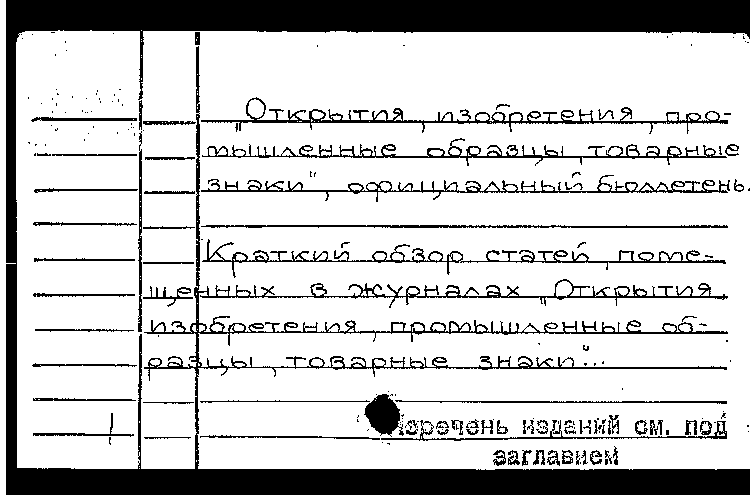 „Открытия, изобретения, про-
мышленные образцы, товарные
знаки", официальный бюллетень.
Краткий обзор статей, поме-
щенных в журналах „Открытия,
изобретения, промышленные об-
разцы, товарные знаки"...
Перечень изданий см. под
заглавием